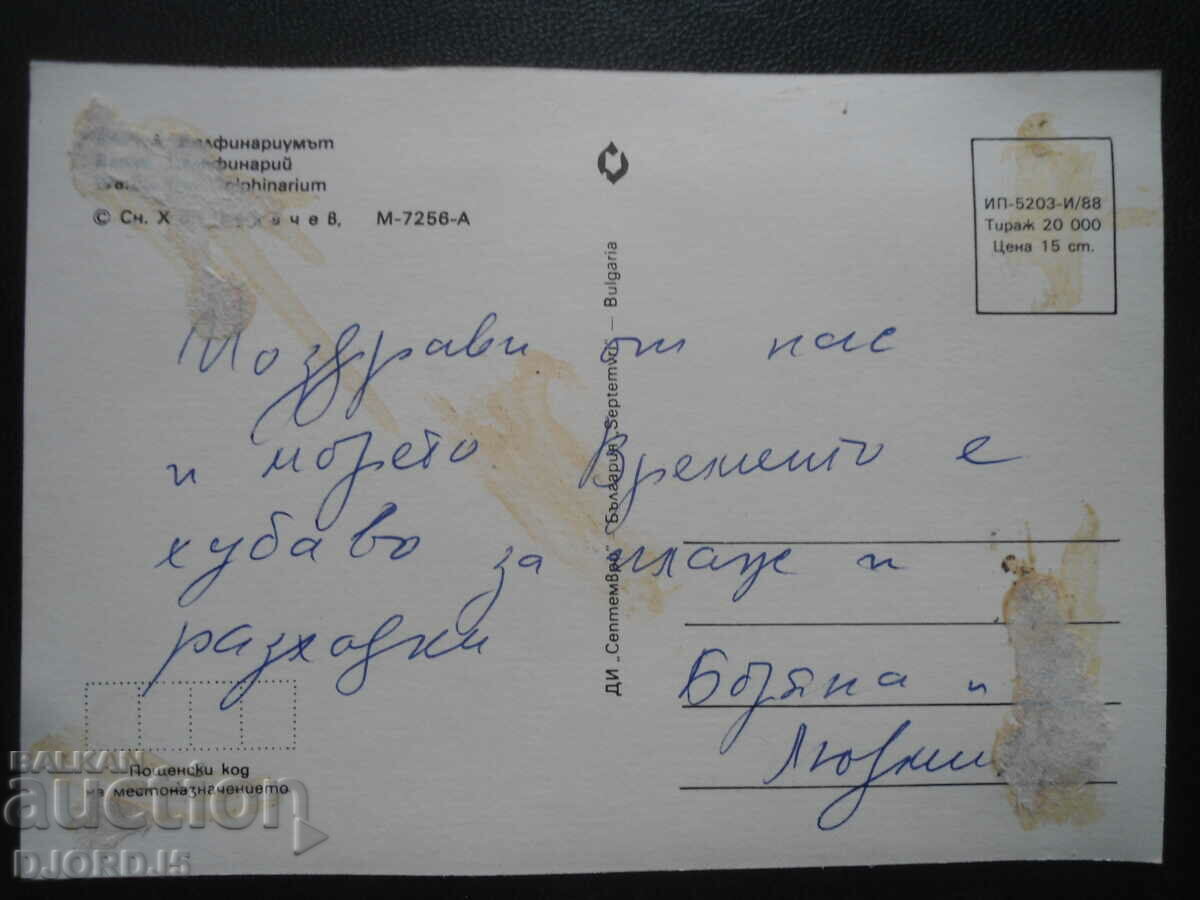 Делфинариумът
Делфинарий
Dolphinarium
© Сн. Х M-7256-А
ИП-5203-И/88
Тираж 20 000
Цена 15 ст.
ДИ „Септември" — България „Septemvri" — Bulgaria
Поздрави от нас
и морето Времето е
хубаво за плаж и
разходки
Боряна и
Пощенски код
на местоназначението
BALKAN
auction
DJORD.J5